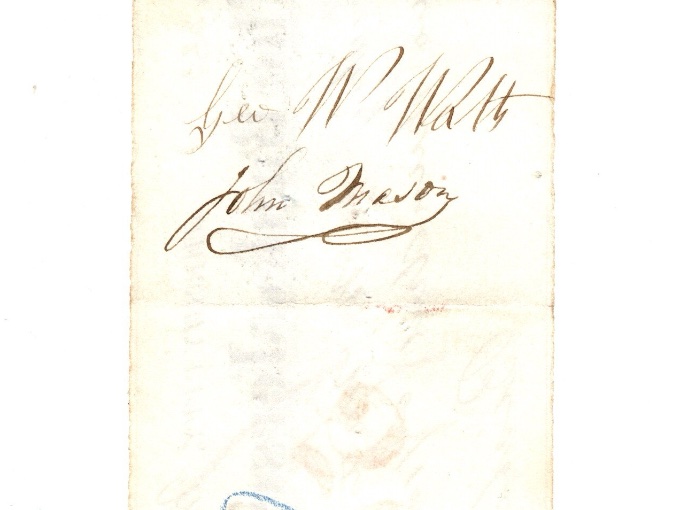 Geo W Watts
John Mason